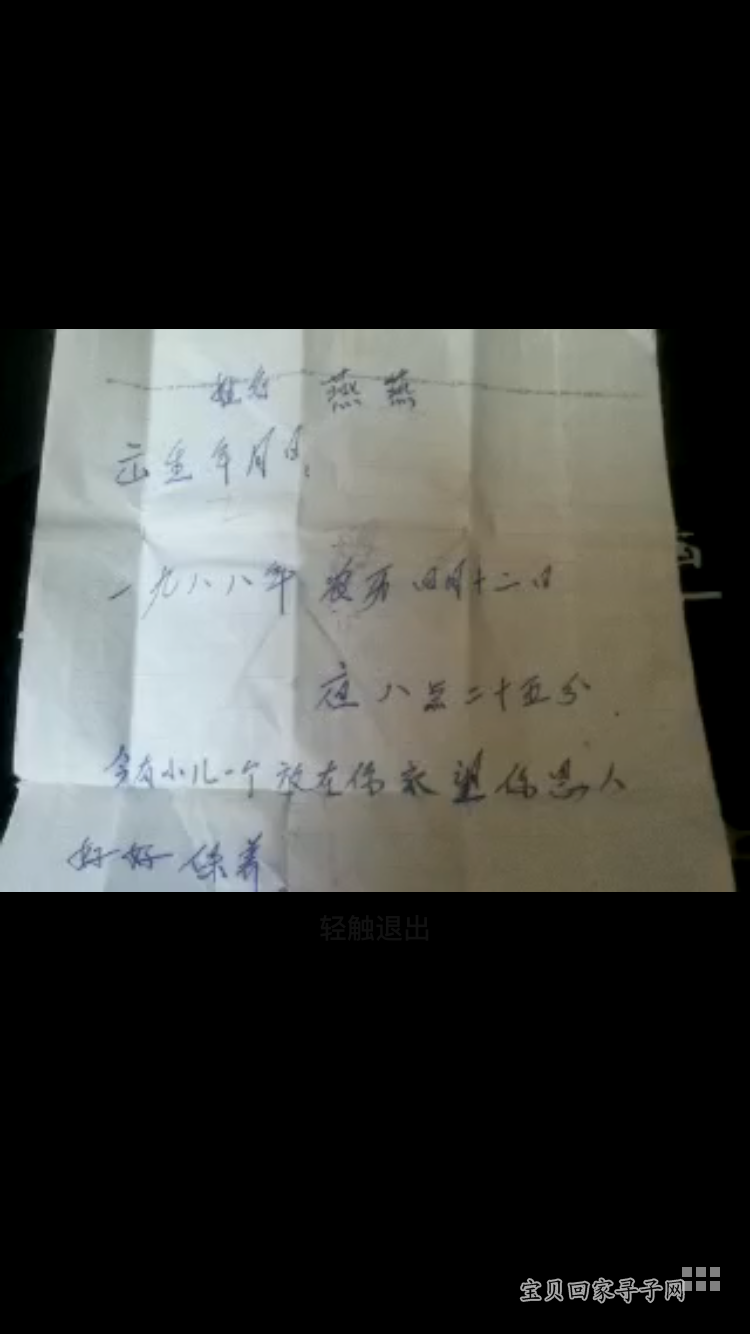 姓名 燕燕
出生年月日:
一九八八年 农历四月十二日
夜八点二十五分.
今有小儿一个放在你家望你恩人
好好保养
轻触退出
宝贝回家寻子网